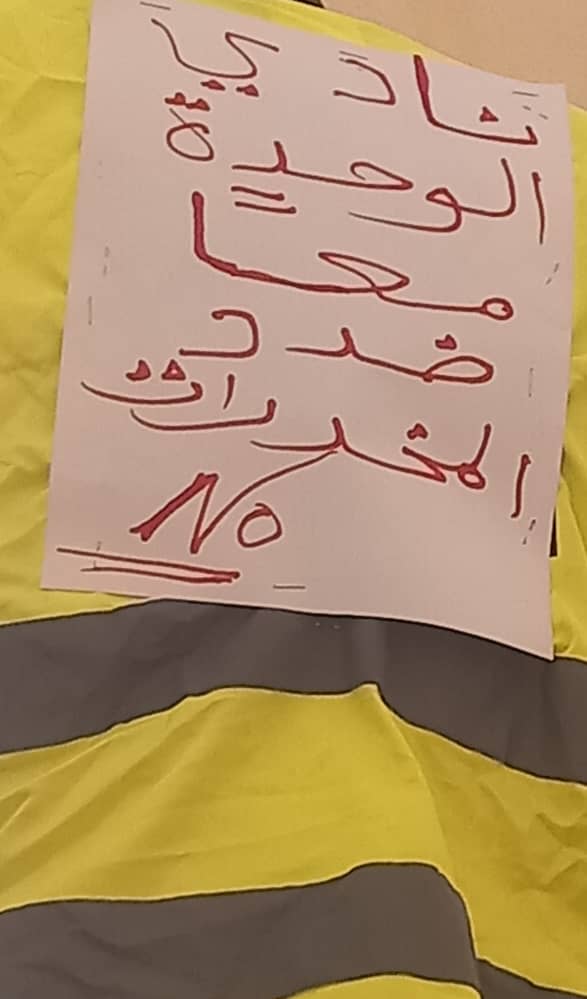 نادي
الوحدة
معا
ضد
المخدرات
No